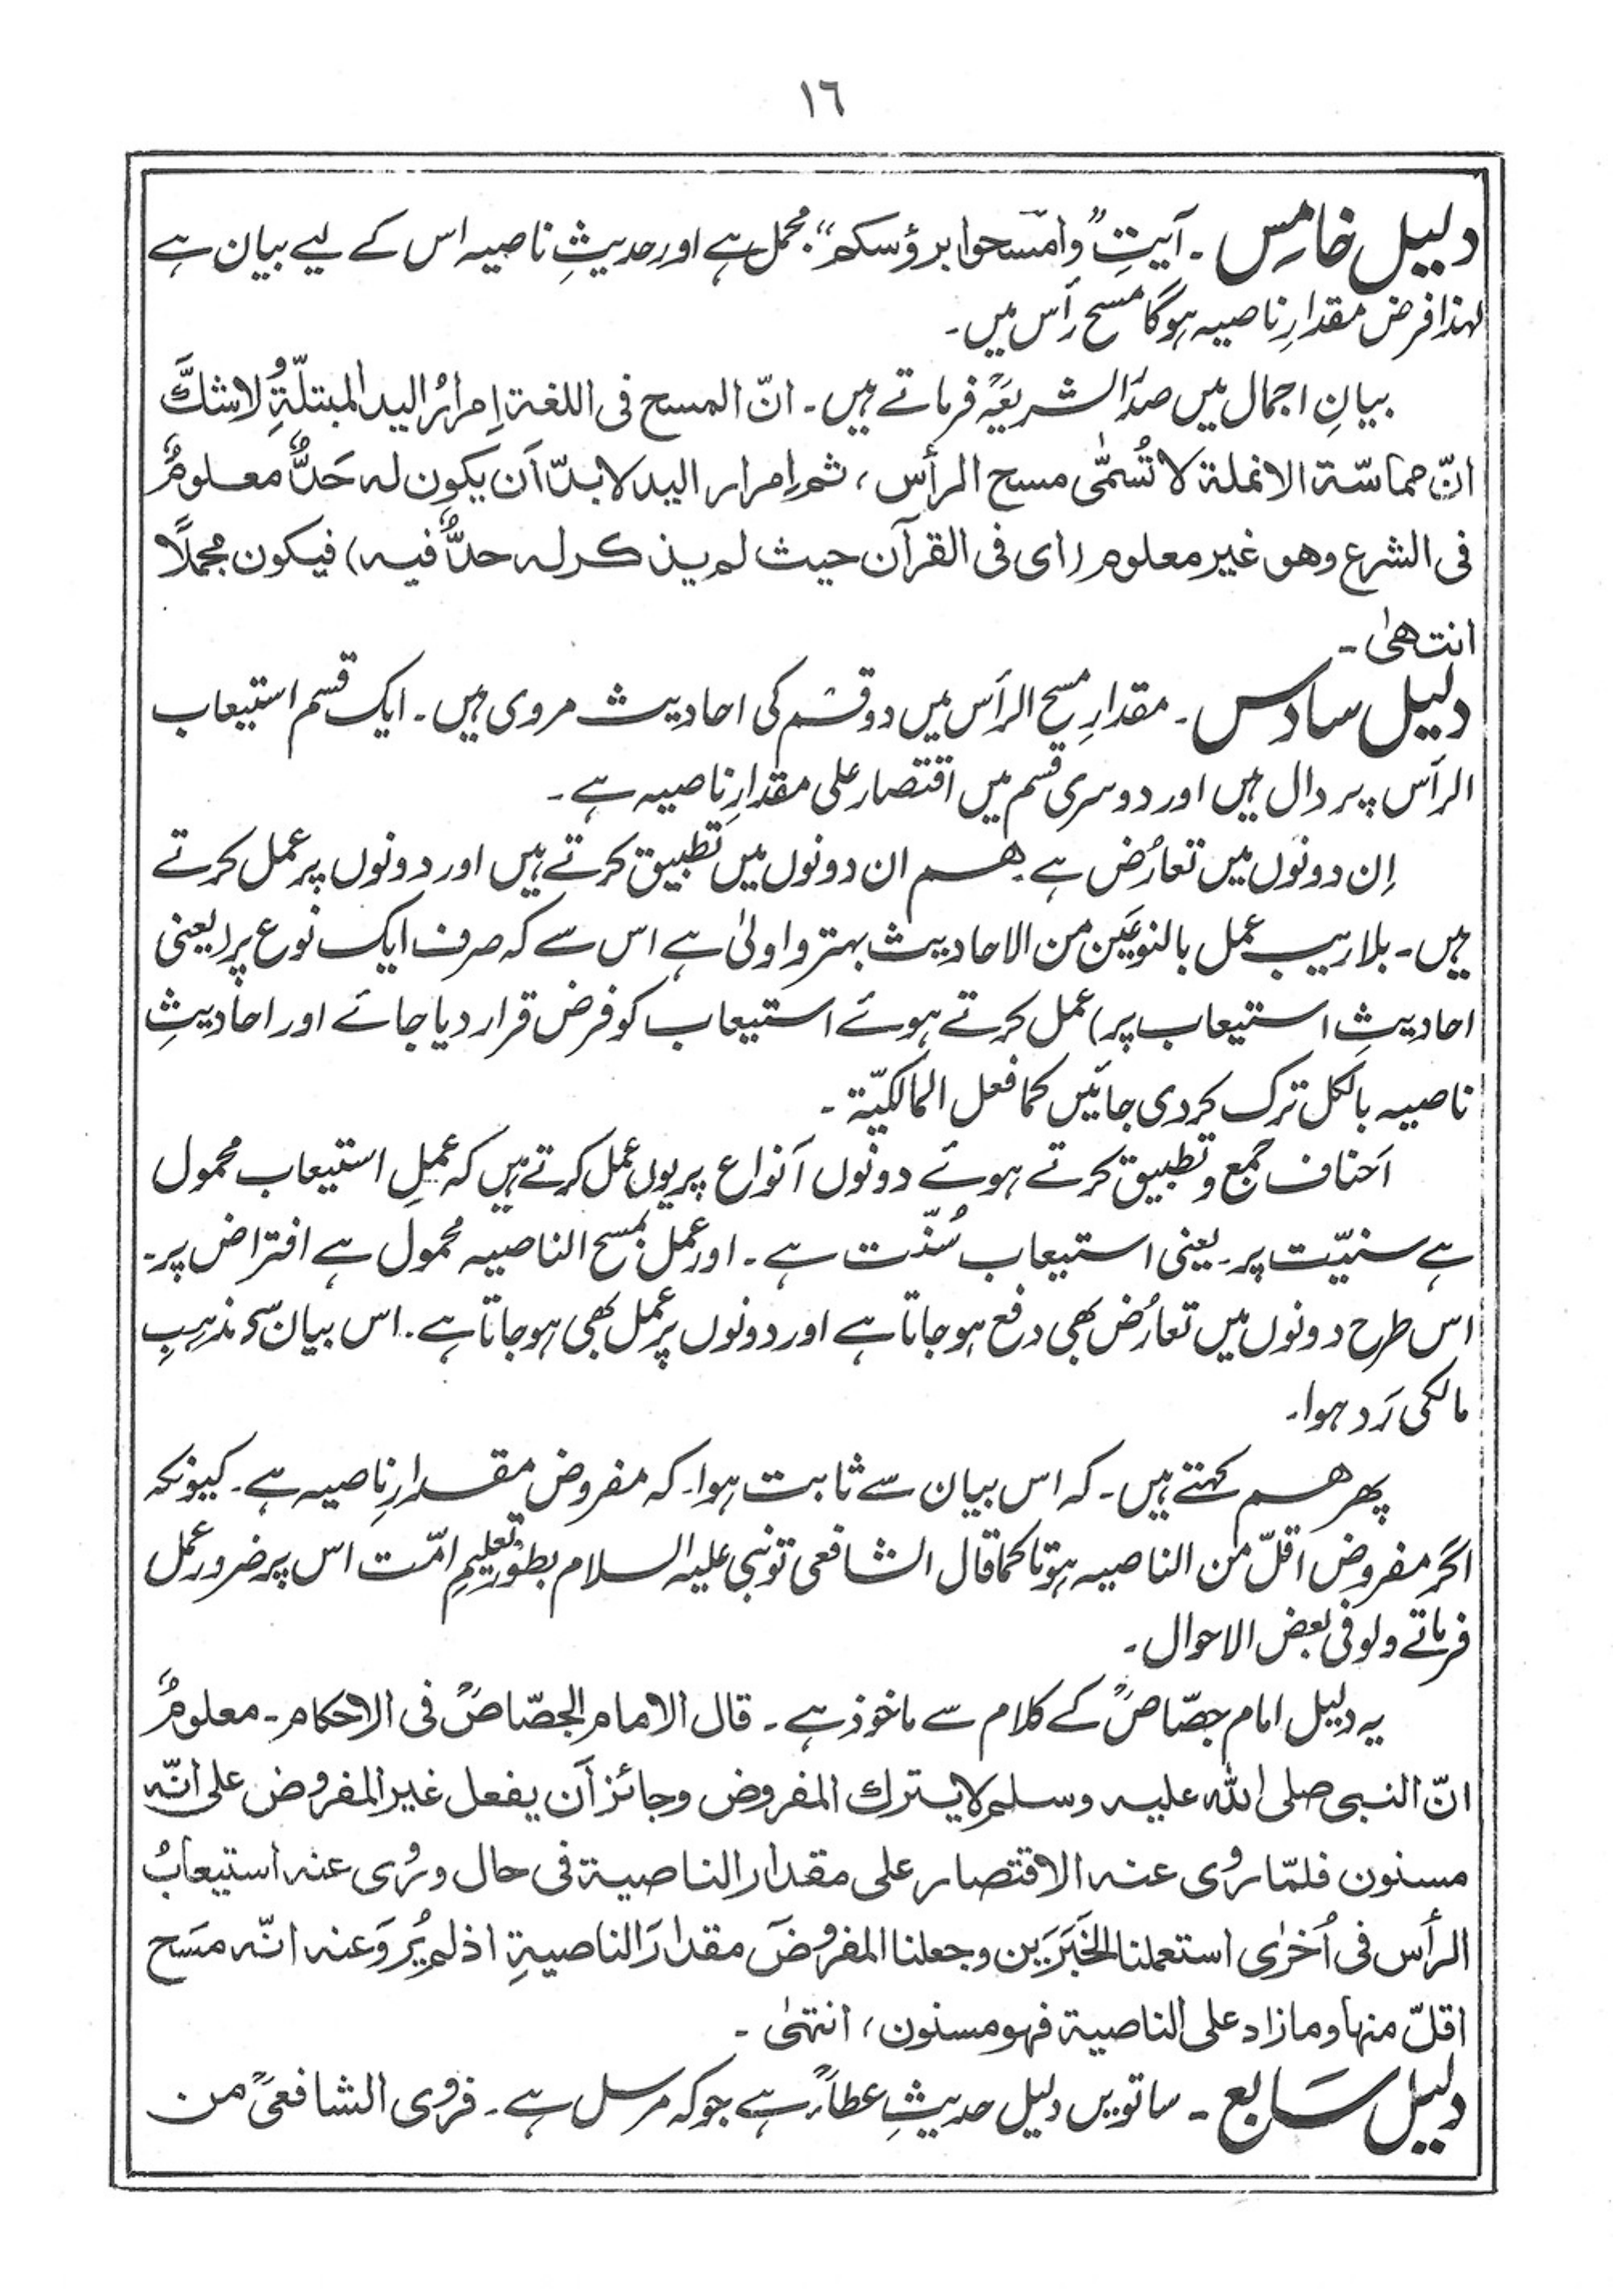 ١٦
دلیل خامس ۔ آیتِ ”وامسحوا برؤسکم“ مجمل ہے اور حدیثِ ناصیہ اس کے لیے بیان ہے
لہذا فرض مقدارِ ناصیہ ہوگا مسح رأس میں ۔
بیانِ اجمال میں صدر الشریعہؒ فرماتے ہیں ۔ انّ المسح فی اللغۃ اِمرارُ الید المبتلّۃِ ولا شكَّ
انّ مماسّۃ الانملۃ لا تُسمّٰی مسح الرأس ، ثم اِمرار الید لا بدّ اَن یکون لہ حَدٌّ معلومٌ
فی الشرع وھو غیر معلوم (ای فی القرآن حیث لم یذکر لہ حدٌّ فیہ) فیکون مجملًا
انتھیٰ ۔
دلیل سادس ۔ مقدارِ مسح الرأس میں دو قسم کی احادیث مروی ہیں ۔ ایک قسم استیعاب
الرأس پر دال ہیں اور دوسری قسم میں اقتصار علی مقدارِ ناصیہ ہے ۔
اِن دونوں میں تعارُض ہے ۔ ھم ان دونوں میں تطبیق کرتے ہیں اور دونوں پر عمل کرتے
ہیں ۔ بلاریب عمل بالنوعَین من الاحادیث بہتر و اولیٰ ہے اس سے کہ صرف ایک نوع پر (یعنی
احادیثِ استیعاب پر) عمل کرتے ہوئے استیعاب کو فرض قرار دیا جائے اور احادیثِ
ناصیہ بالکل ترک کر دی جائیں کما فعل المالکیّۃ ۔
اَحناف جمع و تطبیق کرتے ہوئے دونوں اَنواع پر یوں عمل کرتے ہیں کہ عملِ استیعاب محمول
ہے سنیّت پر ۔ یعنی استیعاب سُنّت ہے ۔ اور عمل بمسح الناصیہ محمول ہے افتراض پر ۔
اس طرح دونوں میں تعارُض بھی دفع ہو جاتا ہے اور دونوں پر عمل بھی ہو جاتا ہے ۔ اس بیان سے مذہبِ
مالکی رَد ہوا ۔
پھر ھم کہتے ہیں ۔ کہ اس بیان سے ثابت ہوا ۔ کہ مفروض مقدارِ ناصیہ ہے ۔ کیونکہ
اگر مفروض اقلّ من الناصیہ ہوتا کما قال الشافعی تو نبی علیہ السلام بطورِ تعلیمِ امّت اس پر ضرور عمل
فرماتے ولو فی بعض الاحوال ۔
یہ دلیل امام جصّاصؒ کے کلام سے ماخوذ ہے ۔ قال الامام الجصّاصؒ فی الاحکام ۔ معلومٌ
انّ النبی صلی اللہ علیہ وسلم لا یترك المفروض وجائز اَن یفعل غیر المفروض علی انّہ
مسنون فلمّا رُوی عنہ الاقتصار علی مقدار الناصیۃ فی حال ورُوی عنہ استیعابُ
الرأس فی اُخرٰی استعملنا الخَبَرَین وجعلنا المفروضَ مقدارَ الناصیۃِ اذ لم یُروَ عنہ انّہ مسَح
اقلّ منہا وما زاد علی الناصیۃ فہو مسنون ، انتہٰی ۔
دلیل سَابع ۔ ساتویں دلیل حدیثِ عطاءؒ ہے جو کہ مرسل ہے ۔ فروی الشافعیؒ من